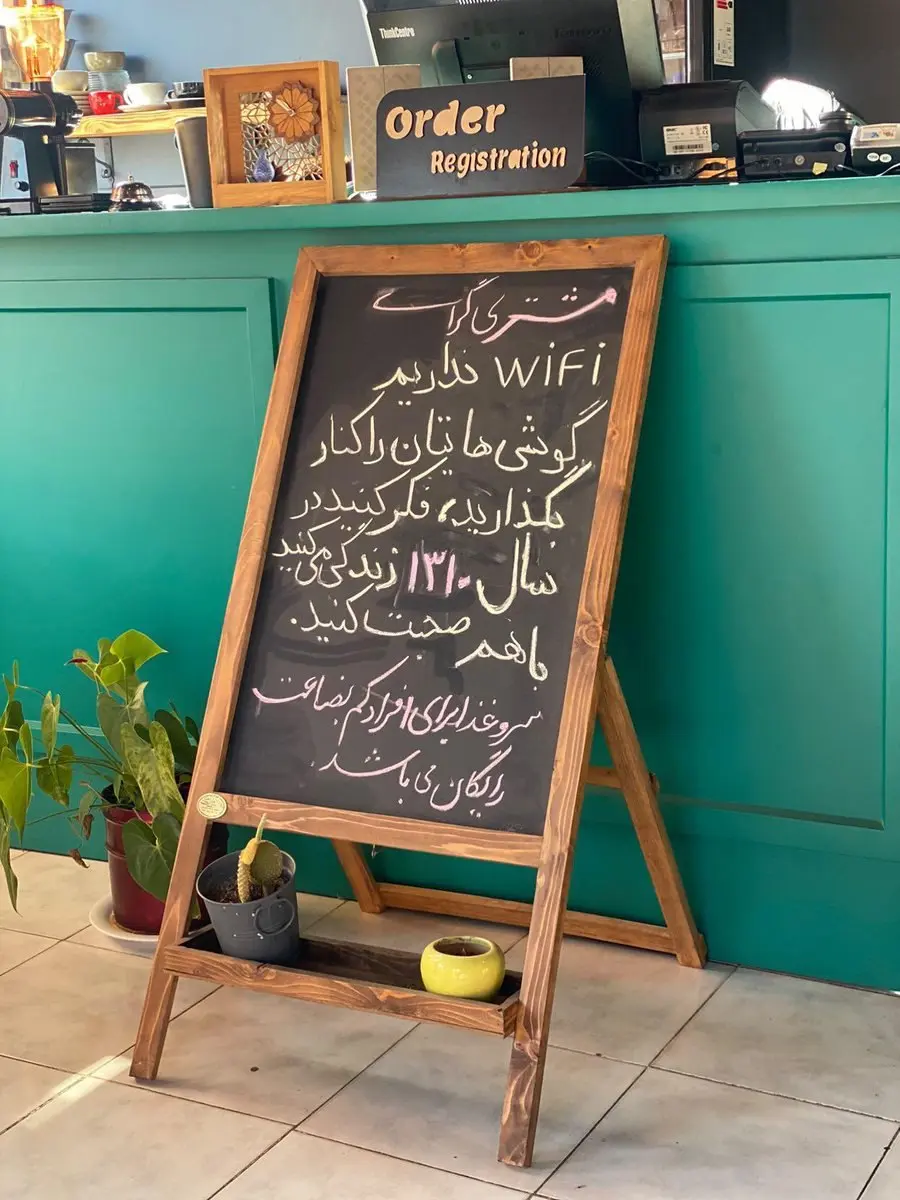 ThinkCentre
Lenovo
Order
Registration
مشتری گرامی
WiFi نداریم
گوشی هایتان را کنار
بگذارید، فکر کنید در
سال ۱۳۱۰ زندگی می کنید
باهم صحبت کنید.
سرو غذا برای افراد کم بضاعت
رایگان می باشد